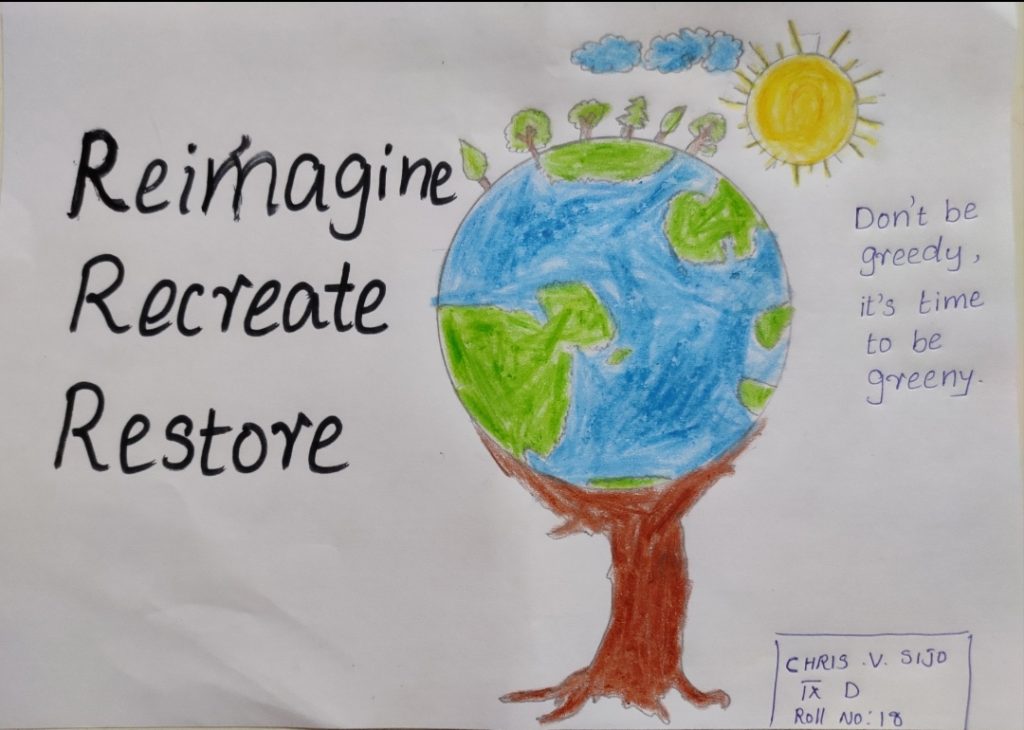 Reimagine
Recreate
Restore
Don't be
greedy,
it's time
to be
greeny.
CHRIS .V. SIJO
IX D
Roll No: 18